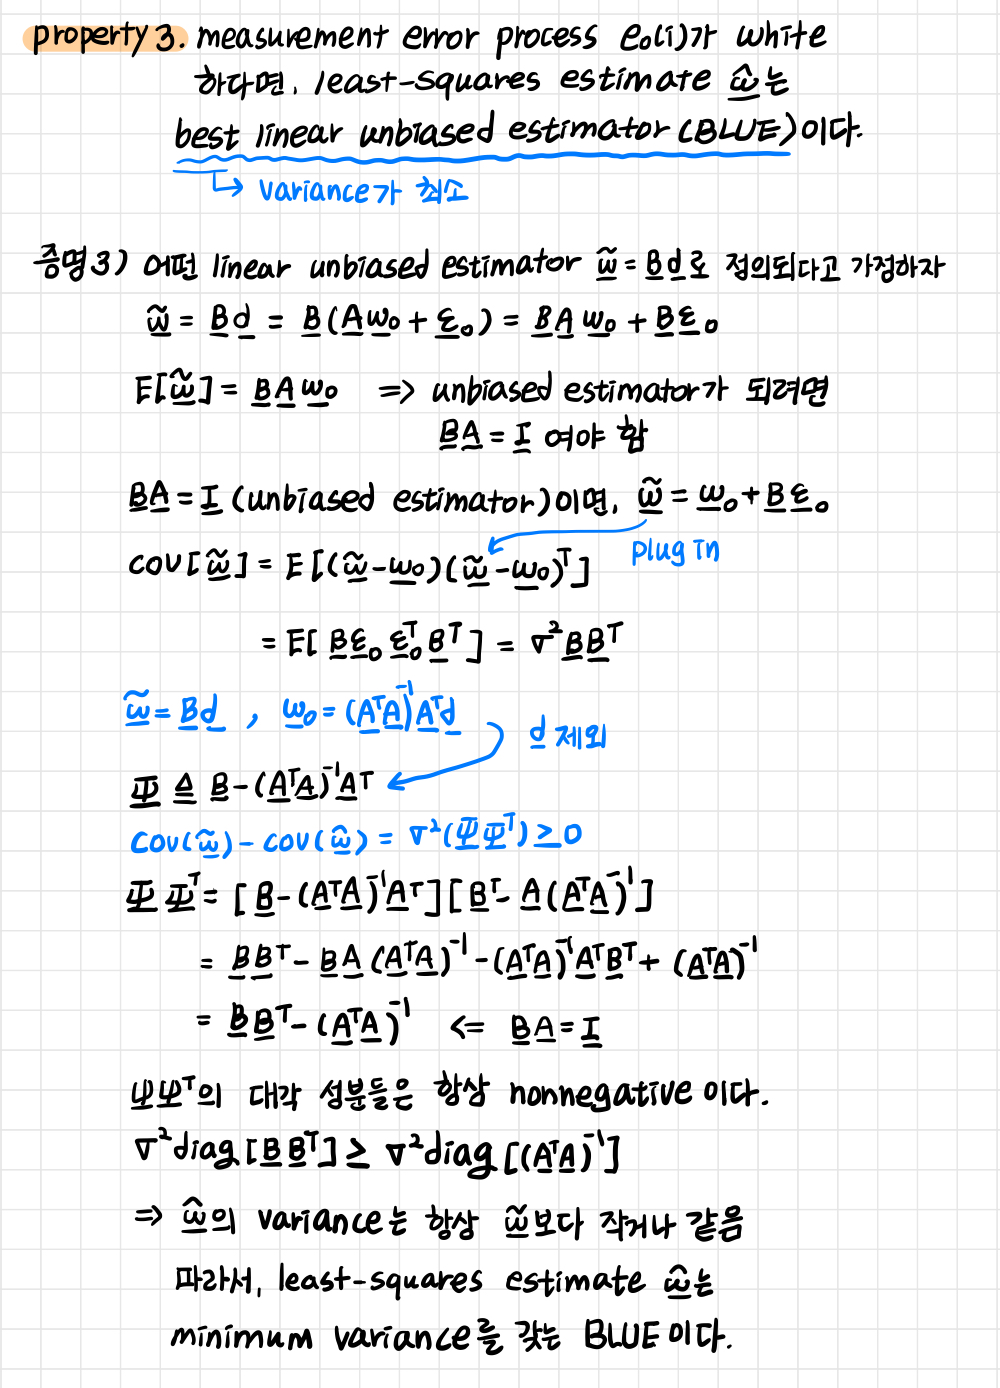 property 3. measurement error process e₀(i)가 white
하다면, least-squares estimate ŵ는
best linear unbiased estimator (BLUE)이다.
↳ variance가 최소
증명3) 어떤 linear unbiased estimator w̃ = Bd로 정의되다고 가정하자
w̃ = Bd = B(Aw₀ + ε₀) = BAw₀ + Bε₀
E[w̃] = BAw₀ ⇒ unbiased estimator가 되려면
BA = I 여야 함
BA = I (unbiased estimator)이면, w̃ = w₀ + Bε₀
plug in
cov[w̃] = E[(w̃-w₀)(w̃-w₀)ᵀ]
= E[Bε₀ε₀ᵀBᵀ] = σ²BBᵀ
w̃ = Bd , w₀ = (AᵀA)⁻¹Aᵀd
d 제외
Ψ ≜ B-(AᵀA)⁻¹Aᵀ
cov(w̃) - cov(ŵ) = σ²(ΨΨᵀ) ≥ 0
ΨΨᵀ = [B-(AᵀA)⁻¹Aᵀ][Bᵀ-A(AᵀA)⁻¹]
= BBᵀ - BA(AᵀA)⁻¹ - (AᵀA)⁻¹AᵀBᵀ + (AᵀA)⁻¹
= BBᵀ - (AᵀA)⁻¹ <= BA = I
ΨΨᵀ의 대각 성분들은 항상 nonnegative 이다.
σ²diag[BBᵀ] ≥ σ²diag[(AᵀA)⁻¹]
⇒ ŵ의 variance는 항상 w̃보다 작거나 같음
따라서, least-squares estimate ŵ는
minimum variance를 갖는 BLUE이다.